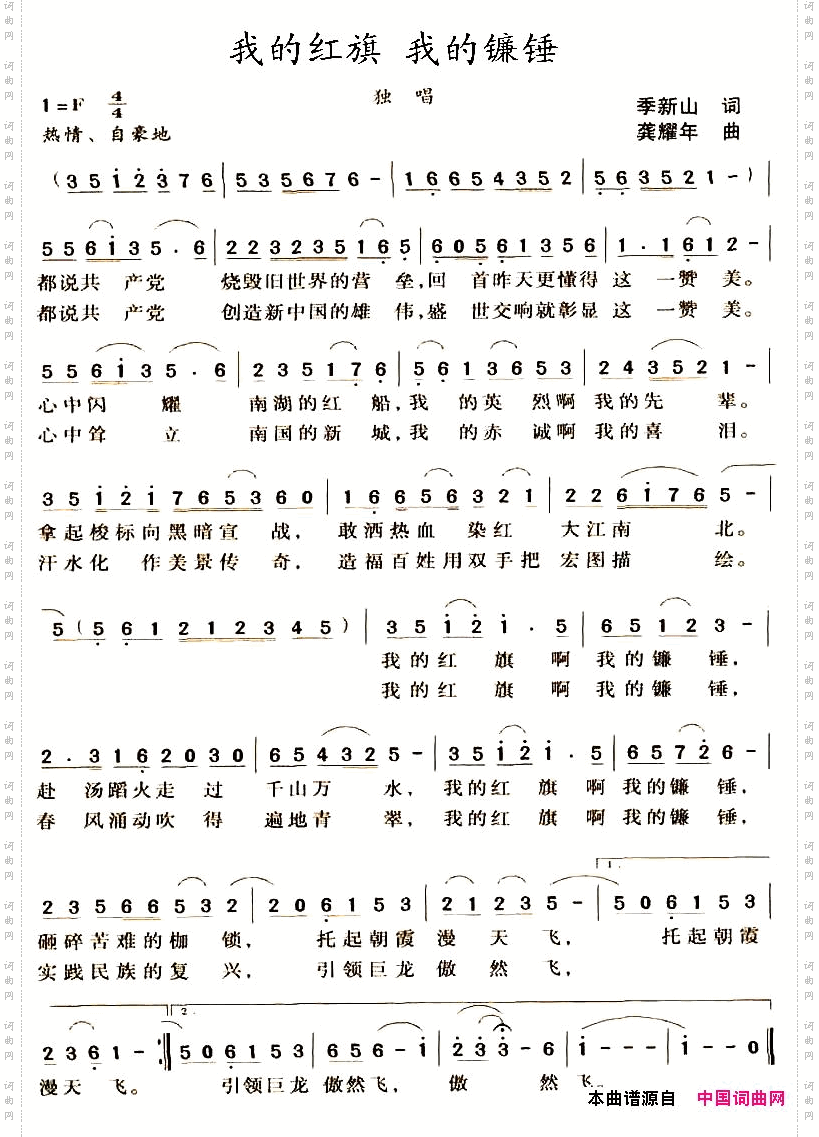 我的红旗 我的镰锤
独 唱
1=F 4/4
季新山 词
热情、自豪地
龚耀年 曲
(3 5 1 2 3 7 6 | 5 3 5 6 7 6 - | 1 6 6 5 4 3 5 2 | 5 6 3 5 2 1 - ) |
5 5 6 1 3 5 . 6 | 2 2 3 2 3 5 1 6 5 | 6 0 5 6 1 3 5 6 | 1 . 1 6 1 2 - |
都说共 产党 烧毁旧世界的营 垒,回 首昨天更懂得 这 一赞 美。
都说共 产党 创造新中国的雄 伟,盛 世交响就彰显 这 一赞 美。
5 5 6 1 3 5 . 6 | 2 3 5 1 7 6 | 5 6 1 3 6 5 3 | 2 4 3 5 2 1 - |
心中闪 耀 南湖的红 船,我 的英 烈啊 我的先 辈。
心中耸 立 南国的新 城,我 的赤 诚啊 我的喜 泪。
3 5 1 2 1 7 6 5 3 6 0 | 1 6 6 5 6 3 2 1 | 2 2 6 1 7 6 5 - |
拿起梭标向黑暗宣 战, 敢洒热血 染红 大江南 北。
汗水化 作美景传 奇, 造福百姓用双手把 宏图描 绘。
5 ( 5 6 1 2 1 2 3 4 5 ) | 3 5 1 2 1 . 5 | 6 5 1 2 3 - |
我的红 旗 啊 我的镰 锤,
我的红 旗 啊 我的镰 锤,
2 . 3 1 6 2 0 3 0 | 6 5 4 3 2 5 - | 3 5 1 2 1 . 5 | 6 5 7 2 6 - |
赴 汤蹈火走 过 千山万 水, 我的红 旗 啊 我的镰 锤,
春 风涌动吹 得 遍地青 翠, 我的红 旗 啊 我的镰 锤,
1.
2 3 5 6 6 5 3 2 | 2 0 6 1 5 3 | 2 1 2 3 5 - | 5 0 6 1 5 3 |
砸碎苦难的枷 锁, 托起朝霞 漫 天 飞, 托起朝霞
实践民族的复 兴, 引领巨龙 傲 然 飞,
2.
2 3 6 1 - :| 5 0 6 1 5 3 | 3 5 6 - 1 | 2 3 3 - 6 | 1 - - - | 1 - - 0 ‖
漫天 飞。 引领巨龙 傲然飞, 傲 然 飞。
本曲谱源自 中国词曲网